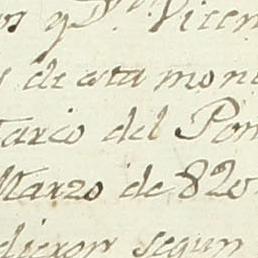 os y D.n Vicen
de esta mon
tarco del Pon
Marzo de 820
dieron segun